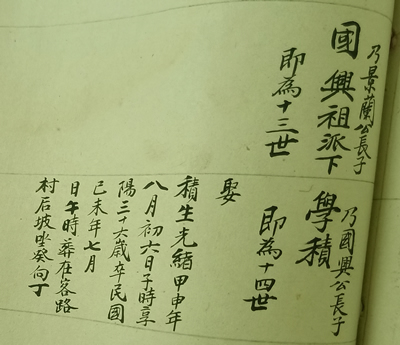 乃景蘭公長子
國興祖派下
即為十三世
乃國興公長子
學積
即為十四世
娶
積生光緒甲申年
八月初六日子時享
陽三十六歲卒民國
己未年七月
日午時葬在客路
村后坡坐癸向丁